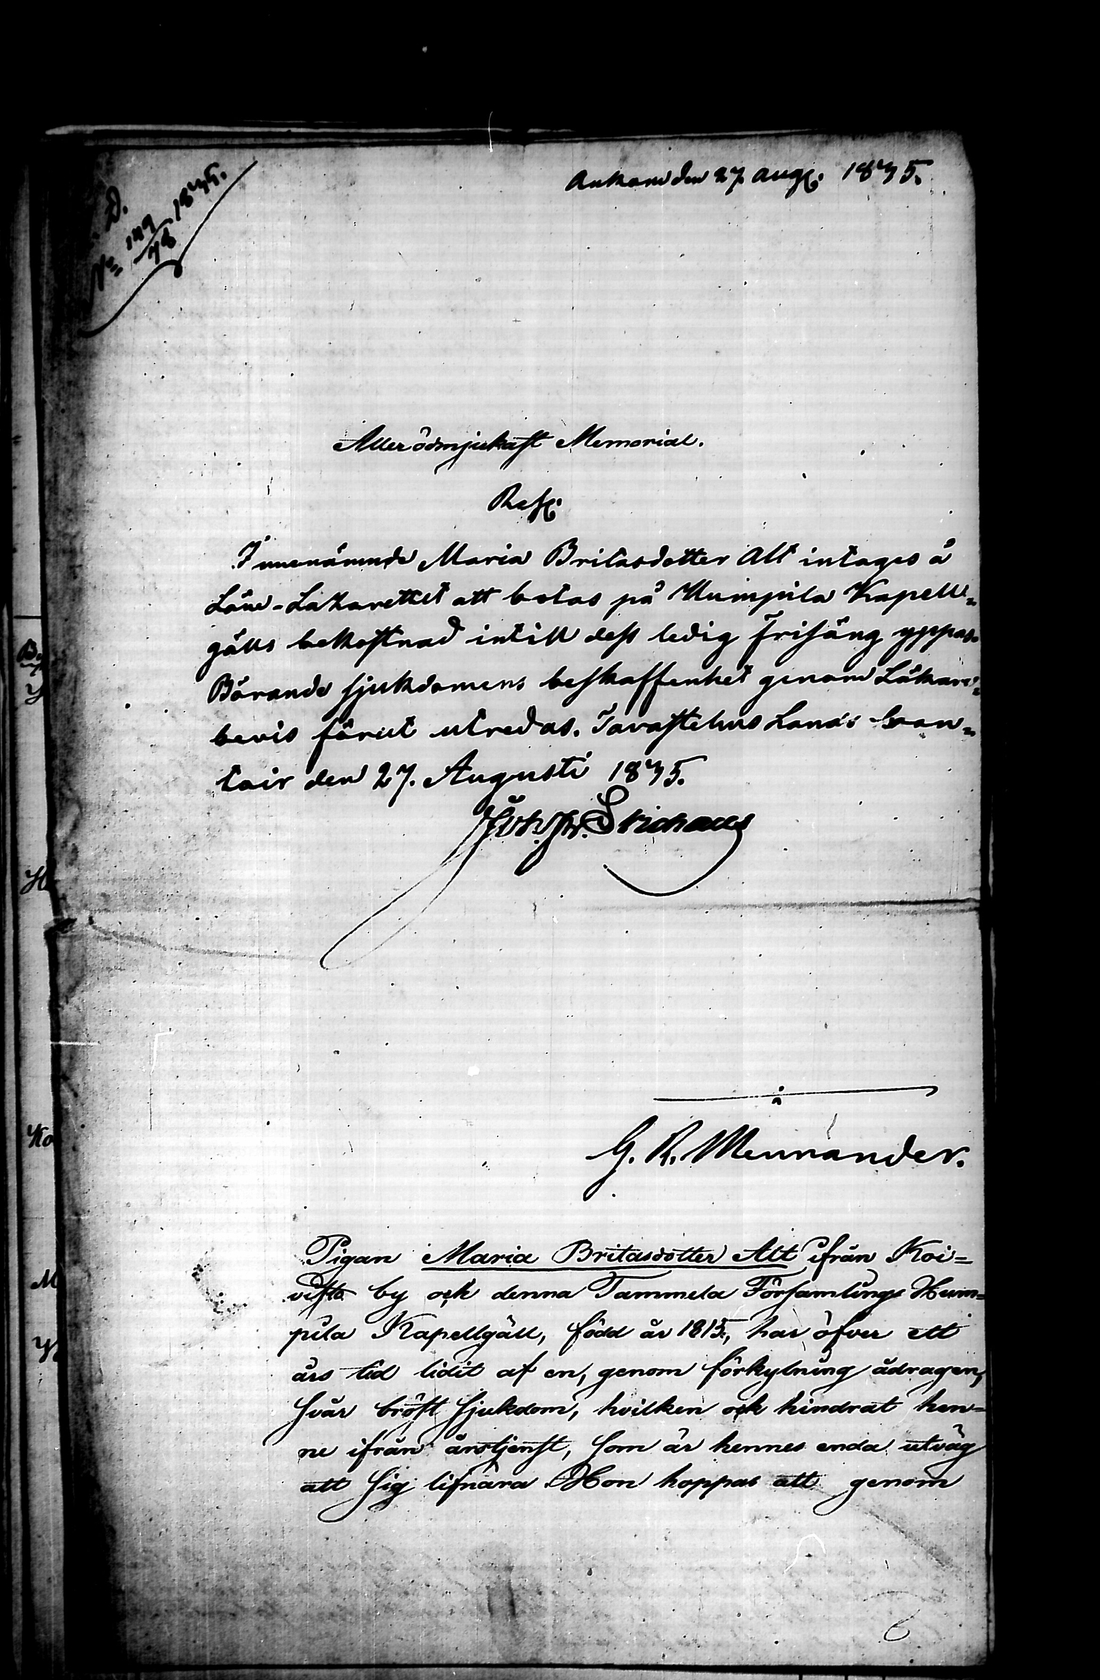 Ankom den 27. Aug. 1835.
D.
No 149/78 1835.
Allerödmjukast Memorial.
Res.
Innenämnde Maria Britasdotter Alt intages å
Läns-Lazarettet att botas på Humpila Kapell=
gälls bekostnad intill dess ledig frisäng yppas
Börande sjukdomens beskaffenhet genom Läkare=
bevis förut utredas. Tavastehus Lands Can=
tsir den 27. Augusti 1835.
G. R. Mennander.
Pigan Maria Britasdotter Alt ifrån Koi=
visto by ock denna Tammela Församlings Hum=
pila Kapellgäll, född år 1815, har öfver ett
års tid lidit af en, genom förkylning ådragen,
svår bröst sjukdom, hvilken ock hindrat hen=
ne ifrån årstjenst, som är hennes enda utväg
att sig lifnära Hon hoppas att genom
6